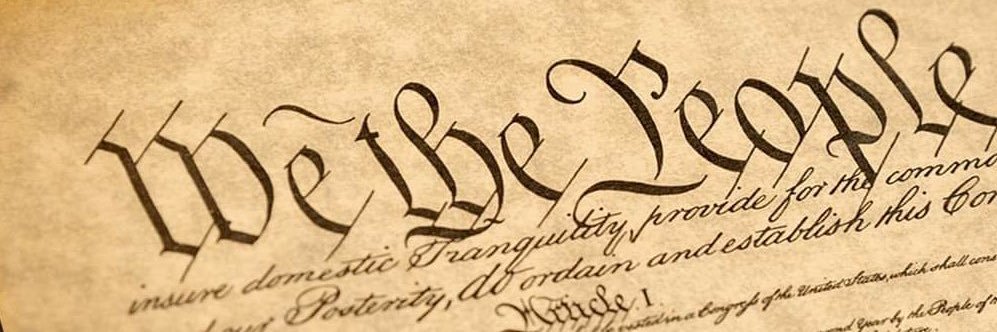 We the People
insure domestic Tranquility, provide for the commo
our Posterity, do ordain and establish this Con
Article I.
be vested in a Congress of the United States, which shall cons
Year by the People of